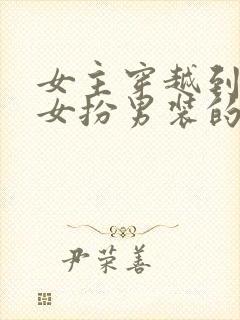 女主穿越到
女扮男装的
尹荣善